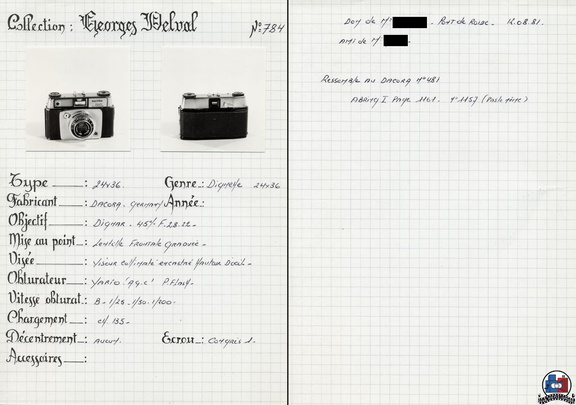 Collection : Georges Delval N°: 784
Type : 24x36.
Genre : Dignette 24x36
Fabricant : Dacora. Germany
Année :
Objectif : Dignar - 45m/m F. 2.8.22 -
Mise au point : Lentille Frontale Graduée -
Visée : Viseur collimaté
Obturateur : Vario. "Ag.c" P. Flash -
Vitesse obturat. : B - 1/25 - 1/50 - 1/200 -
Chargement : ch 135 -
Décentrement : Aucun.
Ecrou : Congrès 1.
Accessoires :
Don de Mr - Pont de Roide - 12.08.81.
Ami de Mr
Ressemble au Dacora n° 481
Abring I. Page 1101. n° 1157 (Posterieur)